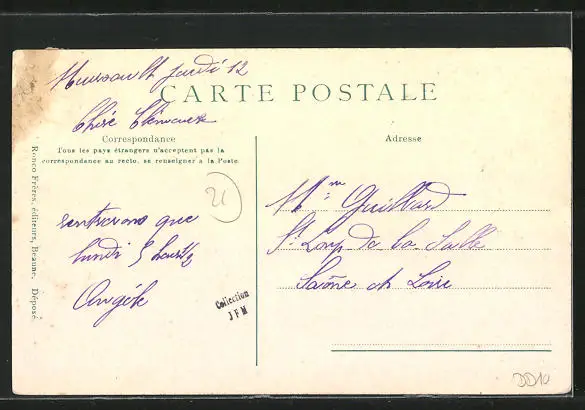 Meursault jeudi 12
CARTE POSTALE
Chère Clémence
Correspondance
Tous les pays étrangers n'acceptent pas la
correspondance au recto, se renseigner à la Poste.
Adresse
Ronco Frères, éditeurs, Beaune. Déposé
21
rentrerons que
lundi 5 heures
Angèle
Collection
JFM
Mme Guillard
St Loup de la Salle
Saône et Loire
DD10